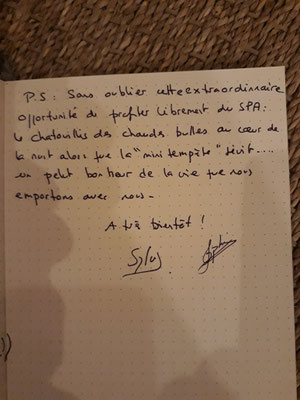 P.S : Sans oublier cette extraordinaire
opportunité de profiter librement du SPA :
le chatouillis des chaudes bulles au cœur de
la nuit alors que la "mini tempête" sévit....
un petit bonheur de la vie que nous
emportons avec nous -
A très bientôt !